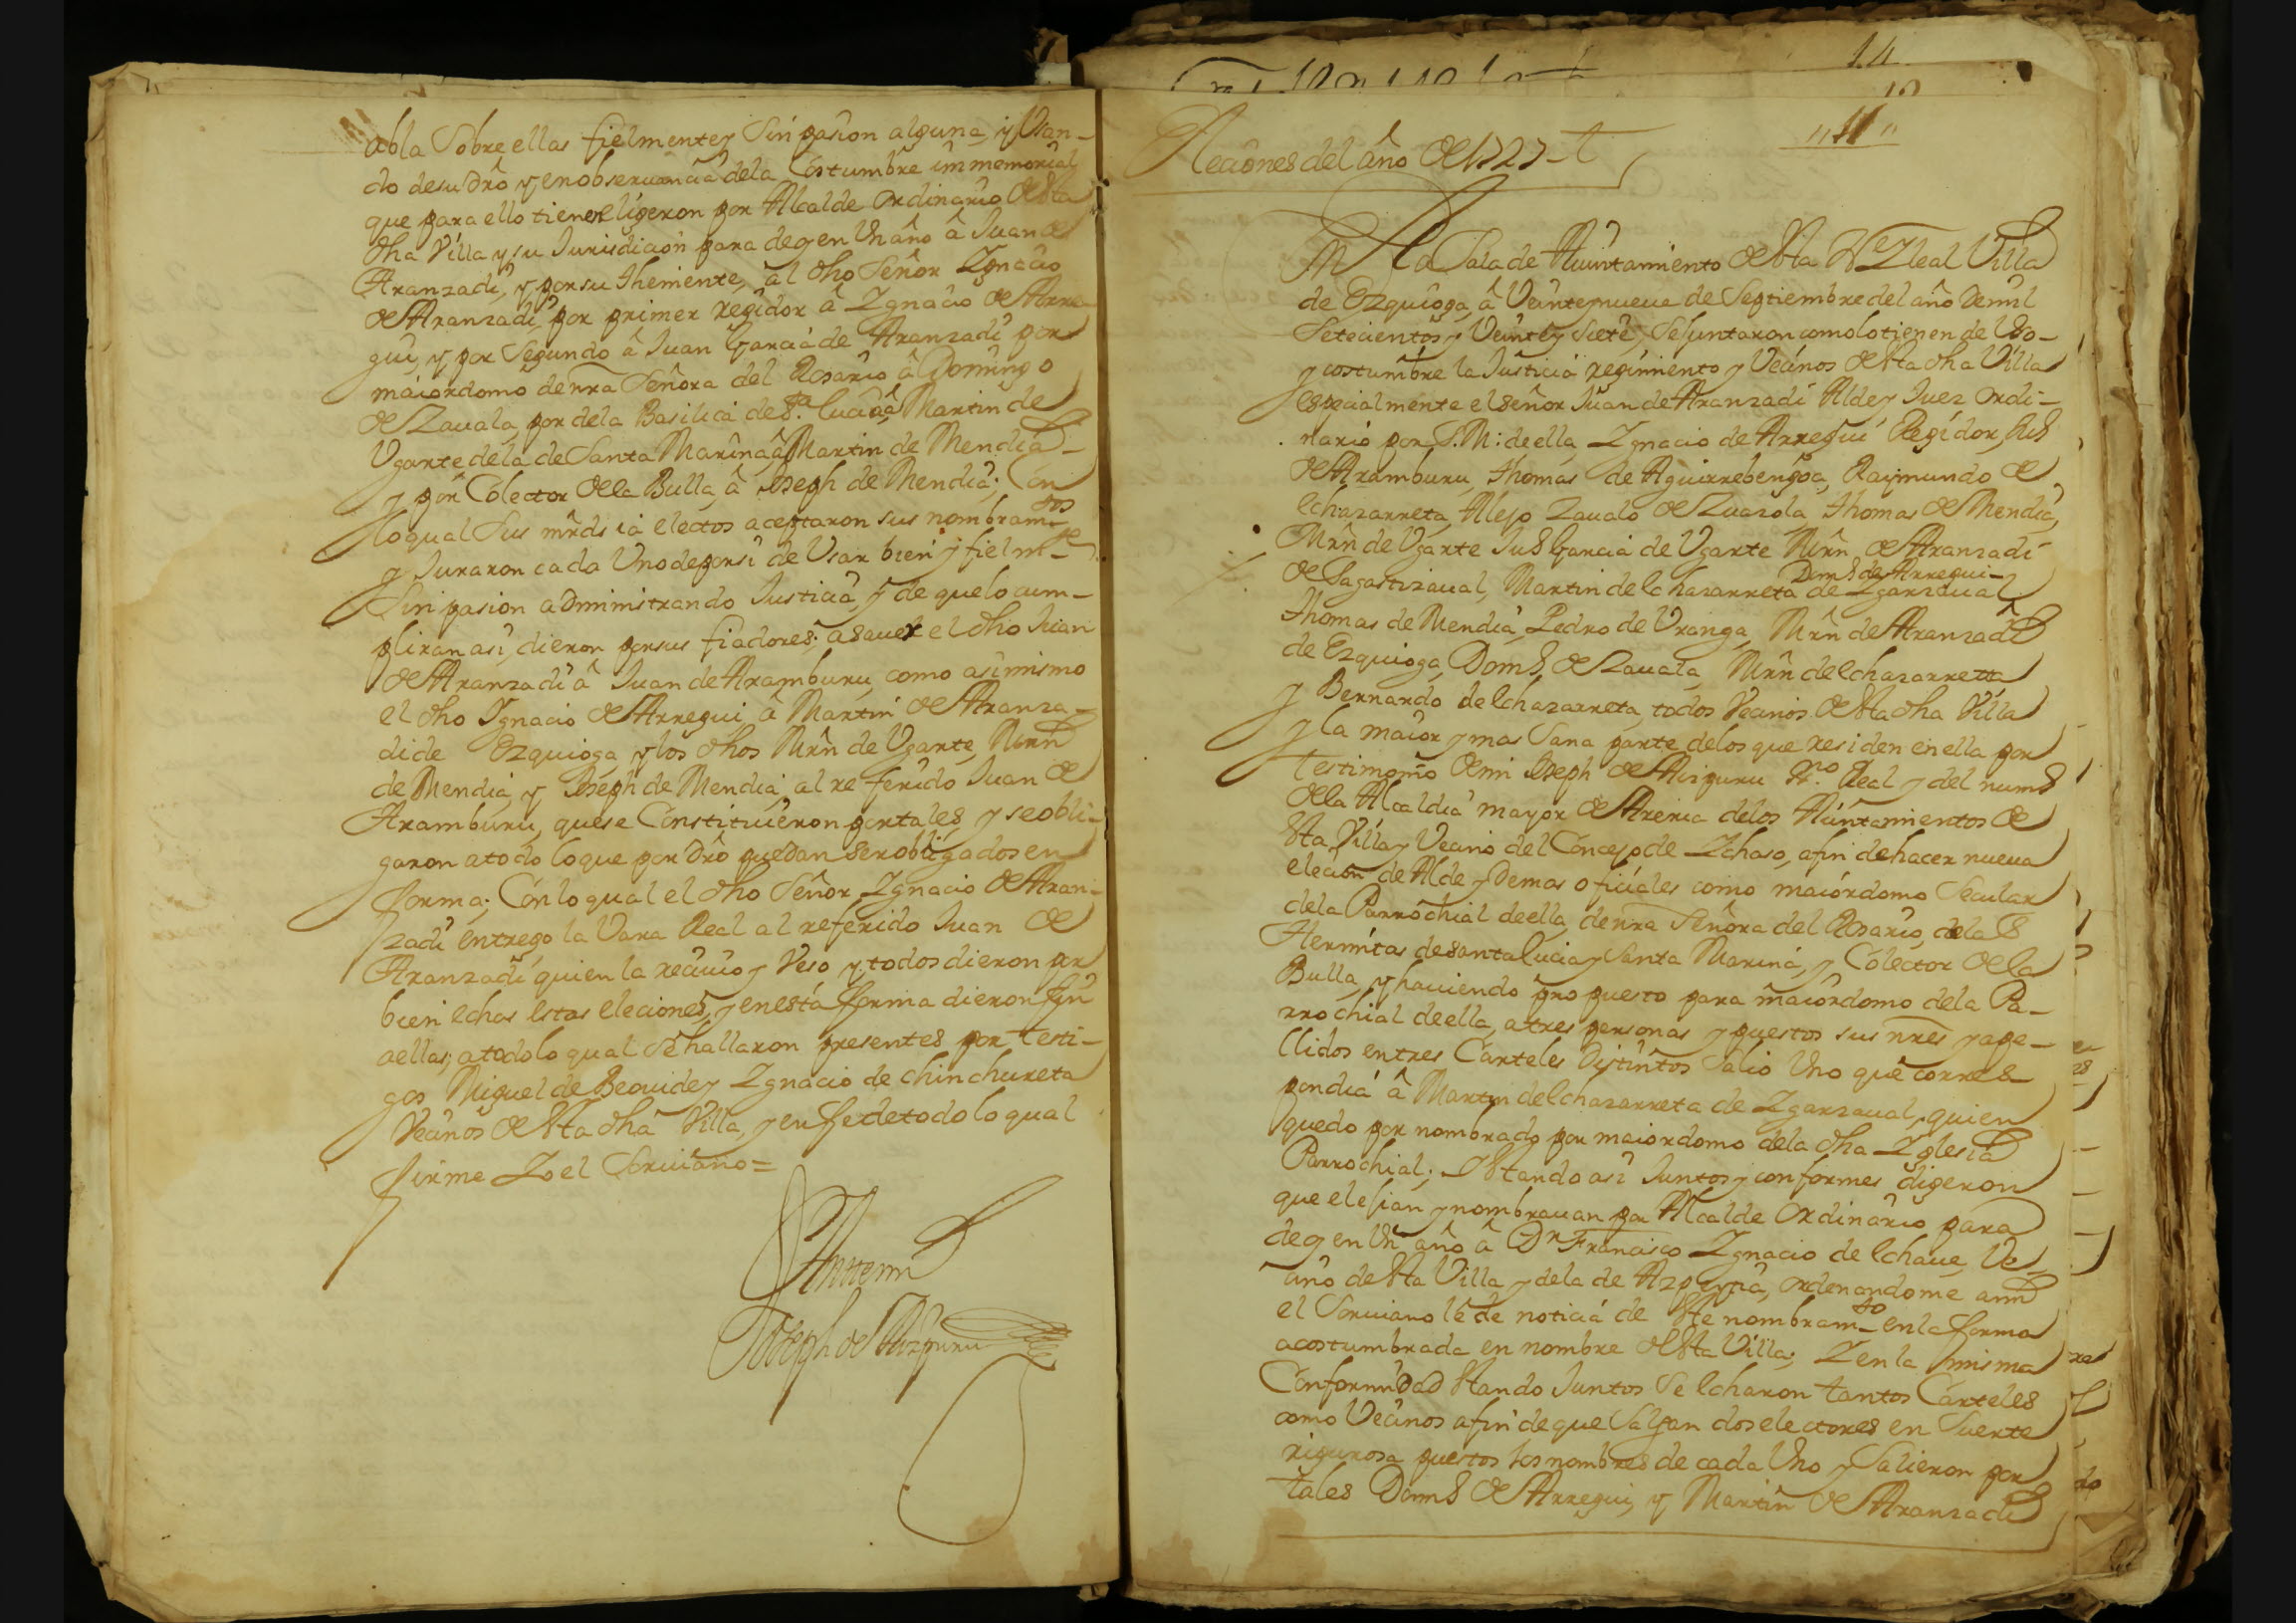 abla Sobre ellas fielmente y Sin pasion alguna, y Usan-
do de su drô y en observancia dela Costumbre immemorial
que para ello tienen eligeron por Alcalde ordinario de Sta
dha Villa y su Jurisdicion para de oy en Un año â Juan de
Aranzadi, y por su theniente, al dho Señor Ygnacio
de Aranzadi, por primer regidor â Ygnacio de Arre
gui, y por Segundo â Juan Garcia de Aranzadi por
maiordomo de nra Señora del Rosario â Domingo
de Zavala, por dela Basilica de Sta. lucia â Martin de
Ugarte, dela de Santa Marina â Martin de Mendia
y por Colector de la Bulla, â Joseph de Mendia; Con
lo qual Sus mrds ia electos aceptaron sus nombramtos
y Juraron cada Uno de por si de Usar bien y fielmte
Sin pasion administrando Justicia, y de que lo cum-
pliran asi, dieron por sus fiadores; a saver el dho Juan
de Aranzadi â Juan de Aramburu, como asimismo
el dho Ygnacio de Arregui â Martin de Aranza-
di de Ezquioga, y los dhos Mrn de Ugarte, Mrn
de Mendia, y Joseph de Mendia, al referido Juan de
Aramburu, que se Constituieron por tales, y se obli-
garon a todo lo que por drô puedan ser obligados en
forma; Con lo qual el dho Señor Ygnacio de Aran-
zadi entrego la Vara Real al referido Juan de
Aranzadi quien la recivio y Veso y todos dieron por
bien echas estas eleciones, y en esta forma dieron fin
a ellas; a todo lo qual Se hallaron presentes por testi-
gos Miguel de Beovide y Ygnacio de chinchurreta
Vecinos de Sta dha Villa, y en fe de todo lo qual
firme Yo el Scrivano=
Antemi
Joseph de Aizpuru
14
10
"11"
Eleciones del año de 1727
En la Sala de Aiuntamiento de Sta N. y leal Villa
de Ezquioga, â Veinte y nueve de Septiembre del año de mil
Setecientos y Veinte y Siete, Se Juntaron como lo tienen de Uso-
y costumbre la Justicia regimiento y Vecinos de Sta dha Villa
especialmente el señor Juan de Aranzadi Alde y Juez ordi-
nario por S.M: de ella, Ygnacio de Arregui Regidor, Jun
de Aramburu, thomas de Aguirrebengoa, Raymundo de
echazarreta, Alejo Zavalo de Zuazola, thomas de Mendia,
Mrn de Ugarte Jun Garcia de Ugarte Mrn de Aranzadi
de Sagastizaval, Martin de echazarreta de Ygarzaval,
Domo de Arregui
thomas de Mendia, Pedro de Uranga, Mrn de Aranzadi
de Ezquioga, Domo de Zavala, Mrn de echazarreta
y Bernardo de echazarreta, todos Vecinos de Sta dha Villa
y la maior y mas Sana parte delos que residen en ella por
testimonio de mi Joseph de Aizpuru Sno Real y del numo
de la Alcaldia mayor de Areria delos Aiuntamientos de
Sta Villa y Vecino del Concejo de Ychaso, a fin de hacer nueva
elecion de Alde y Demas oficiales como maiordomo Secular
dela Parrochial de ella, de nra Señora del Rosario, de las
Hermitas de santa lucia y Santa Marina, y Colector de la
Bulla, y haviendo propuesto para maiordomo dela Pa-
rrochial de ella, a tres personas y puestos sus nres y ape-
llidos en tres Carteles Distintos Salio Uno que corres-
pondia â Martin de echazarreta de Ygarzaval, quien
quedo por nombrado por maiordomo dela dha Yglesia
Parrochial; y Stando asi Juntos y conformes digeron
que elejian y nombravan por Alcalde Ordinario para
de oy en Un año â Dn Francisco Ygnacio de echave, Ve-
cino de Sta Villa y dela de Azpeytia, ordenandome a mi
el Scrivano le de noticia de Ste nombramto en la forma
acostumbrada en nombre de Sta Villa; Y en la misma
Conformidad Stando Juntos Se echaron tantos Carteles
como Vecinos a fin de que Salgan dos electores en Suerte
rigurosa puestos los nombres de cada Uno y Salieron por
tales Domo de Arregui, y Martin de Aranzadi